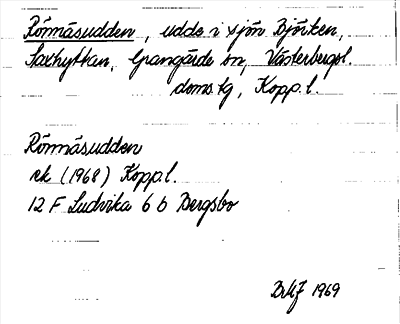 Rönnäsudden, udde i sjön Björken,
Saxhyttan, Grangärde sn, Västerbergsl.
doms. tg, Kopp. l.
Rönnäsudden
ek (1968) Kopp. l.
12 F Ludvika 6 b Bergsbo
1969